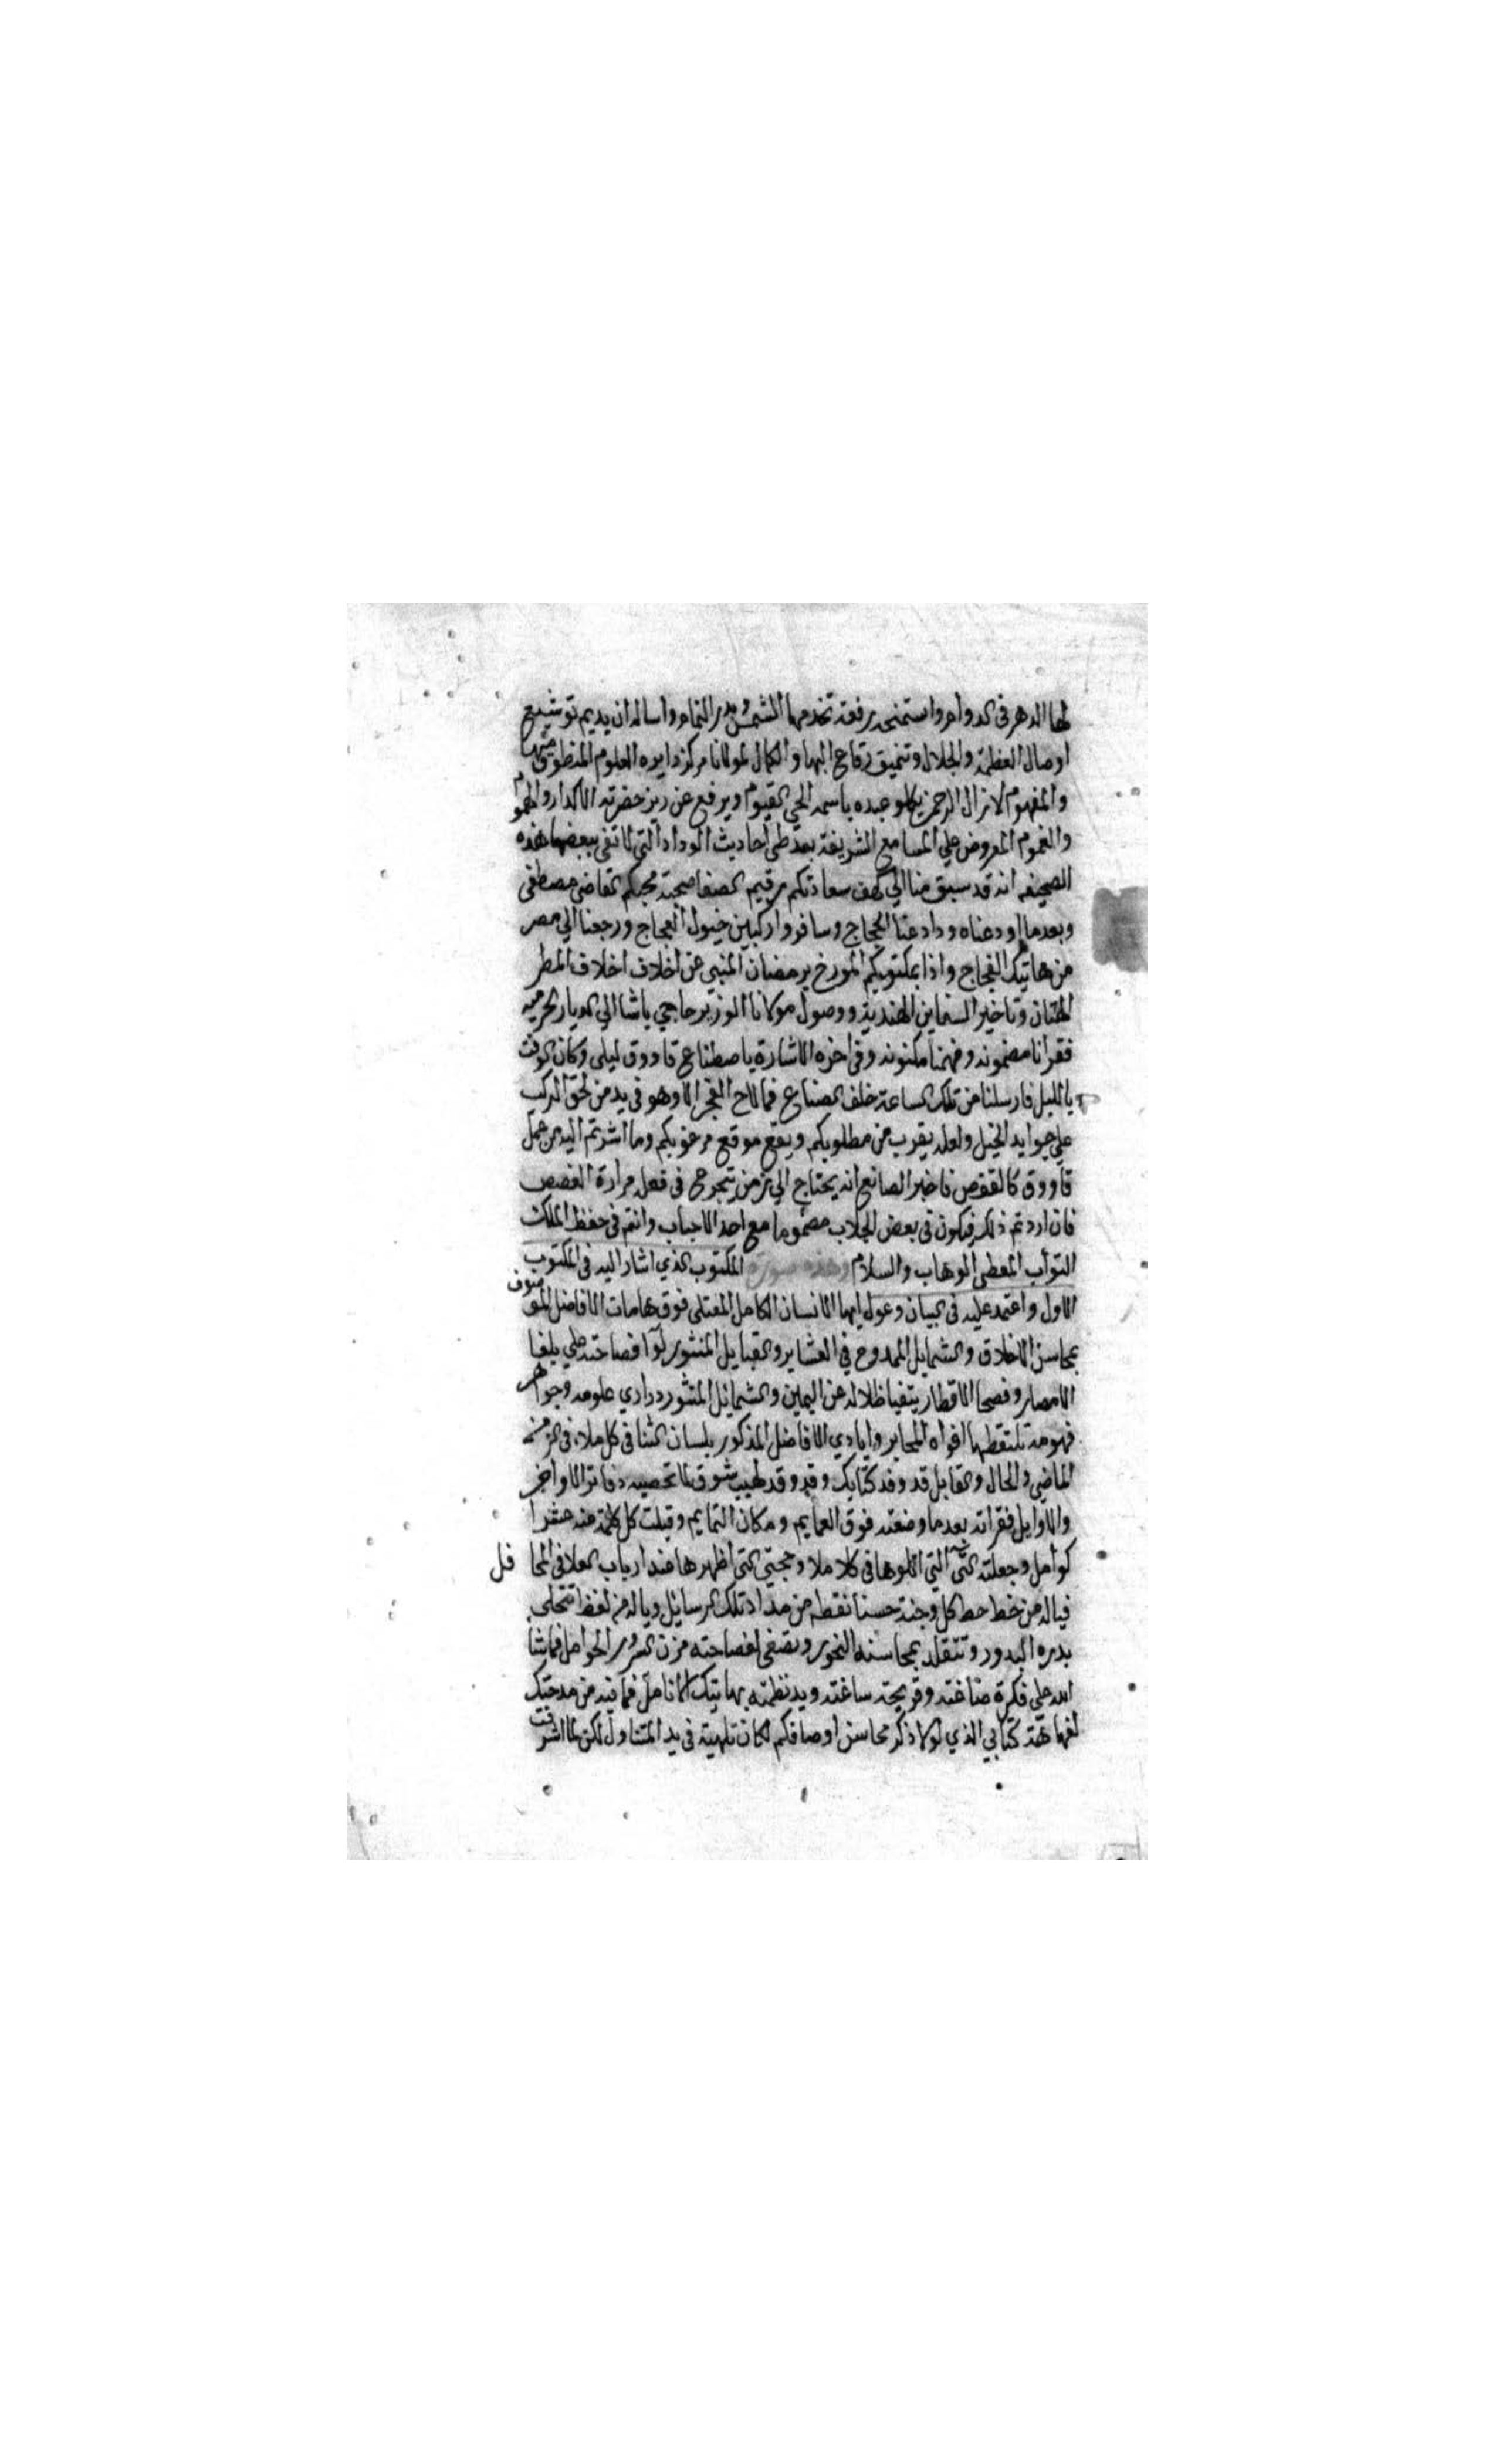 لها الدهر في الدوام واستمنحه رفعة تخدمها الشمس وبدر التمام واساله ان يديم توشيع
اوصال العظمة والجلال وتنميق رقاع البها والكمال لمولانا مركز دايره العلوم المنطوق منها
والمفهوم لازال الرحمن يكلو عبده باسمه الحي القيوم ويرفع عن حضرته الاكدار والهموم
والغموم المعروض علي المسامع الشريفة بعد طي احاديث الوداد التي لا تفي ببعضها هذه
الصحيفه انه قد سبق منا الي كهف سعادتكم رقيم الصفا صحبة محبكم القاضي مصطفى
وبعدما اودعناه ودادعنا الحجاج وسافروا راكبين خيول العجاج ورجعنا الي مصر
من هاتيك الفجاج واذا بمكتوبكم المورخ برمضان المنبي عن اخلاف اخلاف المطر
الهتان وتاخير السفاين الهندية ووصول مولانا الوزير حاجي باشا الي الديار الحرميه
فقرانا مضمونه وفهمنا مكنونه وفي اخره الاشارة باصطناع قاووق ليلي وكان الوقت
بالليل فارسلنا من تلك الساعة خلف الصناع فما لاح الفجر الا وهو في يد من لحق الركب
علي جوايد الخيل ولعله يقرب من مطلوبكم ويقع موقع مرغوبكم وما اشرتم اليه من عمل
قاووق كالقفص فاخبر الصانع انه يحتاج الي زمن يتجرع في فعل مرارة الغصص
فان اردتم ذلك فيكون في بعض الجلاب مصحوبا مع احد الاحباب وانتم في حفظ الملك
التواب المعطي الوهاب والسلام وهذه صورة المكتوب الذي اشار اليه في المكتوب
الاول واعتمد عليه في البيان وعول ايها الانسان الكامل المعتلي فوق هامات الافاضل الموصوف
بمحاسن الاخلاق والشمايل الممدوح في العشاير والقبايل المنشور لوا فصاحته علي بلغا
الامصار وفصحا الاقطار يتفيا ظلاله عن اليمين والشمائل المنثور درادي علومه وجواهر
فهومه تلتقطها افواه المحابر وايادي الافاضل المذكور بلسان الثنا في كل ملاء في الزمن
الماضي والحال والقابل قد وفد كتابك وقد وقد لهيب شوق لا تحصيه دفاتر الاواخر
والاوايل فقراته بعدما وضعته فوق العمايم ومكان التمايم وقبلت كل كلمة منه عشرا
كوامل وجعلته التي اتلوها في كل ملا وحجتي التي اظهرها عند ارباب العلا في المحافل
فياله من خط حط كل وجنة حسنا نقطه من مداد تلك الرسائل وياله من لفظ تتحلى
بدره البدور وتتقلد بمحاسنه النحور وتصغى لفصاحته مزن السرور الحوامل فما شا
الله علي فكرة صاغته وقريحة ساغته ويد نظمته بهاتيك الانامل فما فيه من مدحتك
لفهاهة كتابي الذي لولا ذكر محاسن اوصافكم لكان تلهية في يد المتناول لكن لما اشرقت